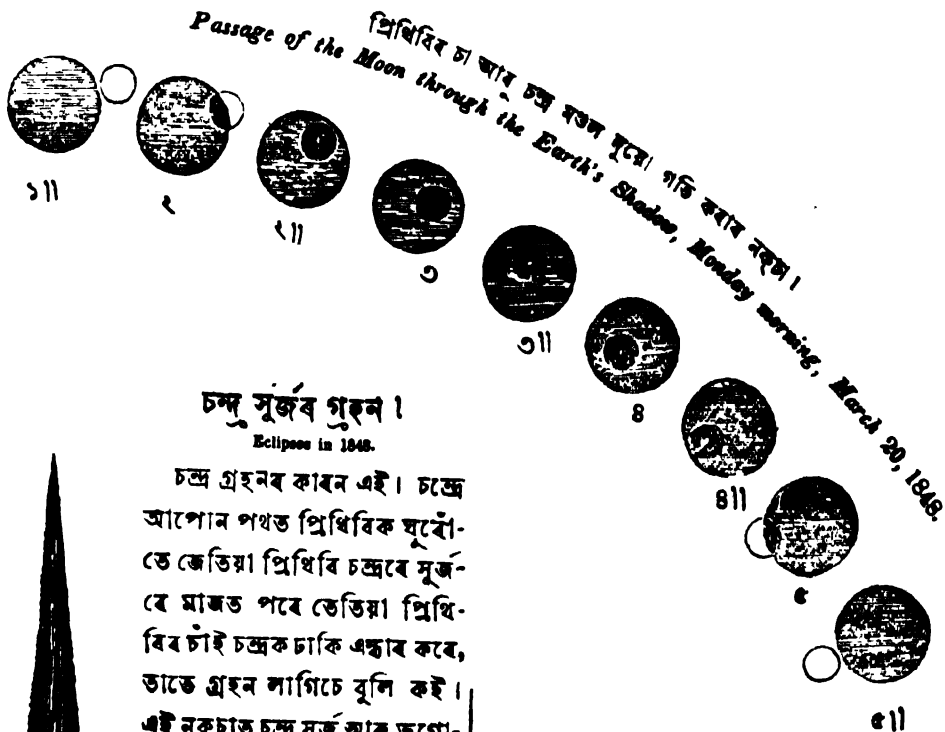 প্ৰিথিবিৰ চা আৰু চন্দ্ৰ মণ্ডল ঘুৰো গতি কৰাৰ নক্চা।
Passage of the Moon through the Earth's Shadow, Monday morning, March 20, 1848.
১॥
২
২॥
৩
৩॥
৪
৪॥
৫
৫॥
চন্দ্ৰ সুৰ্জৰ গ্ৰহন।
Eclipses in 1848.
চন্দ্ৰ গ্ৰহনৰ কাৰন এই। চন্দ্ৰে
আপোন পথত প্ৰিথিবিক ঘুৰোঁ-
তে জেতিয়া প্ৰিথিবি চন্দ্ৰৰে সূৰ্জ-
ৰে মাজত পৰে তেতিয়া প্ৰিথি-
বিৰ চাঁই চন্দ্ৰক ঢাকি এন্ধাৰ কৰে,
তাতে গ্ৰহন লাগিচে বুলি কই।
এই নকচাত চন্দ্ৰ সূৰ্জ আৰু ভূগো-